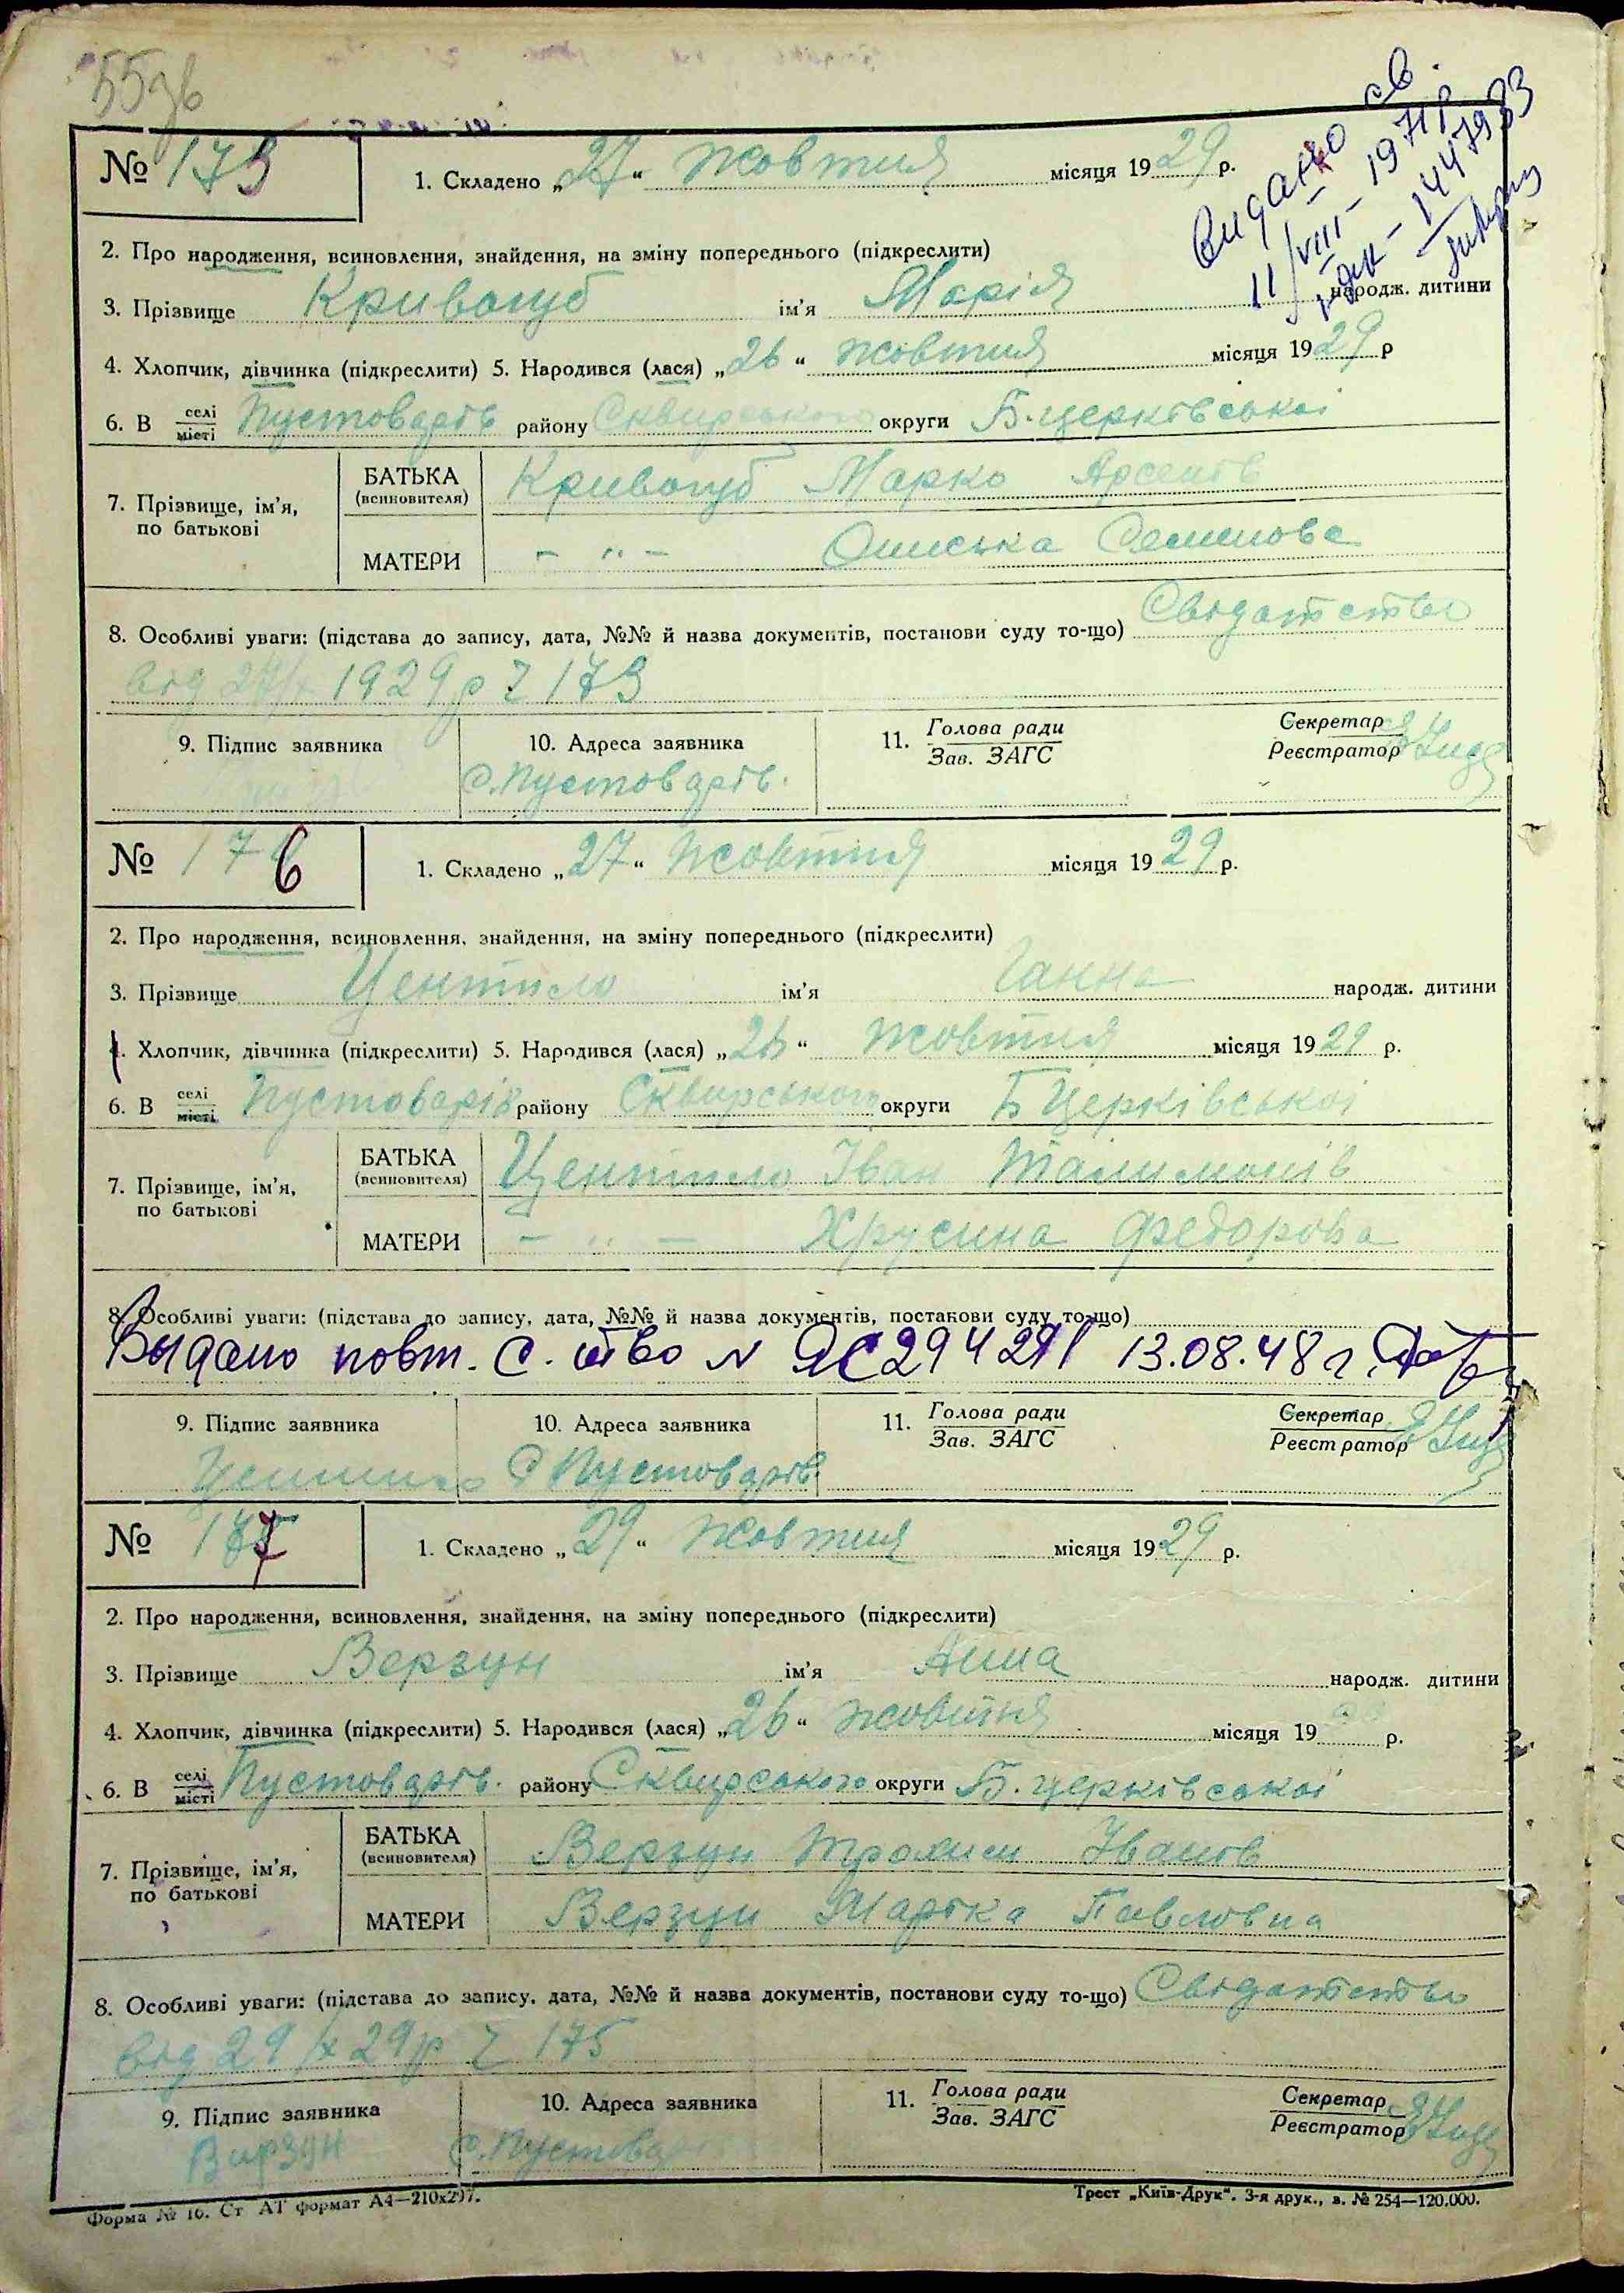 55зв
Видано св.
11/VIII – 1971 р
– 1447983
№ 175
1. Складено „27“ жовтня місяця 1929 р.
2. Про народження, всиновлення, знайдення, на зміну попереднього (підкреслити)
3. Прізвище Кривогуб ім’я Марія народж. дитини
4. Хлопчик, дівчинка (підкреслити) 5. Народився (лася) „26“ жовтня місяця 1929 р
6. В селі місті Пустоварів району Сквирського округи Б. церківської
7. Прізвище, ім’я, по батькові
БАТЬКА (всиновителя) Кривогуб Марко Арсенів
МАТЕРИ – „ – Ониська Семенова
8. Особливі уваги: (підстава до запису, дата, №№ й назва документів, постанови суду то-що) Свідотство
від 27/X 1929 р 173
9. Підпис заявника
10. Адреса заявника
11. Голова ради Зав. ЗАГС
Секретар Реєстратор
с. Пустоварів.
№ 176
1. Складено „27“ жовтня місяця 1929 р.
2. Про народження, всиновлення, знайдення, на зміну попереднього (підкреслити)
3. Прізвище Центило ім’я Ганна народж. дитини
4. Хлопчик, дівчинка (підкреслити) 5. Народився (лася) „26“ жовтня місяця 1929 р.
6. В селі місті Пустоварів району Сквирського округи Б Церківської
7. Прізвище, ім’я, по батькові
БАТЬКА (всиновителя) Центило Іван Талимонів
МАТЕРИ – „ – Хрусина Федорова
8. Особливі уваги: (підстава до запису, дата, №№ й назва документів, постанови суду то-що)
Выдано повт. с. ство N 13.08.48 г.
9. Підпис заявника
10. Адреса заявника
11. Голова ради Зав. ЗАГС
Секретар Реєстратор
Центило С Пустоварів.
№ 177
1. Складено „29“ жовтня місяця 1929 р.
2. Про народження, всиновлення, знайдення, на зміну попереднього (підкреслити)
3. Прізвище Верзун ім’я Анна народж. дитини
4. Хлопчик, дівчинка (підкреслити) 5. Народився (лася) „26“ жовтня місяця 19 р.
6. В селі місті Пустоварів. району Сквирського округи Б. церківської
7. Прізвище, ім’я, по батькові
БАТЬКА (всиновителя) Верзун Трохим Іванів
МАТЕРИ Верзун Марійка Павловна
8. Особливі уваги: (підстава до запису, дата, №№ й назва документів, постанови суду то-що) Свідотство
від 29/X 29 р 175
9. Підпис заявника
10. Адреса заявника
11. Голова ради Зав. ЗАГС
Секретар Реєстратор
Вирзун с. Пустовар
Форма № 16. Ст АТ формат А4—210х297.
Трест „Київ-Друк“. 3-я друк., з. № 254—120.000.